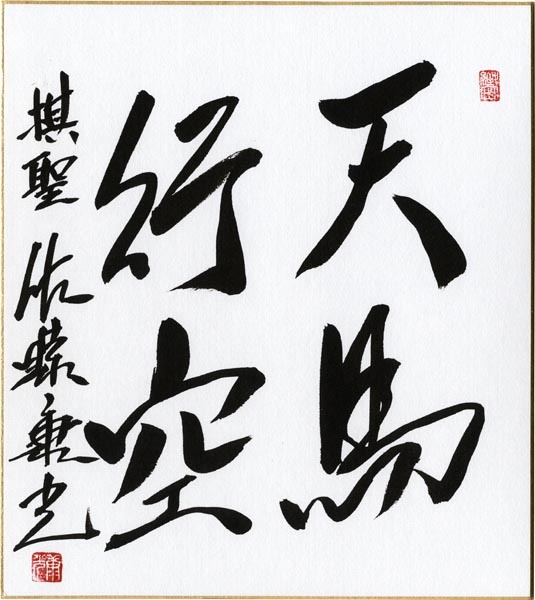 天馬
行空
棋聖 佐藤康光